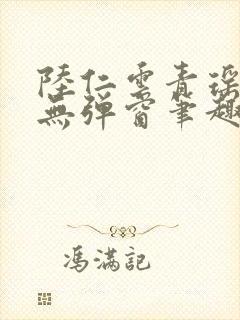 陸仁雲青瑤
無彈窗筆趣
馮滿記